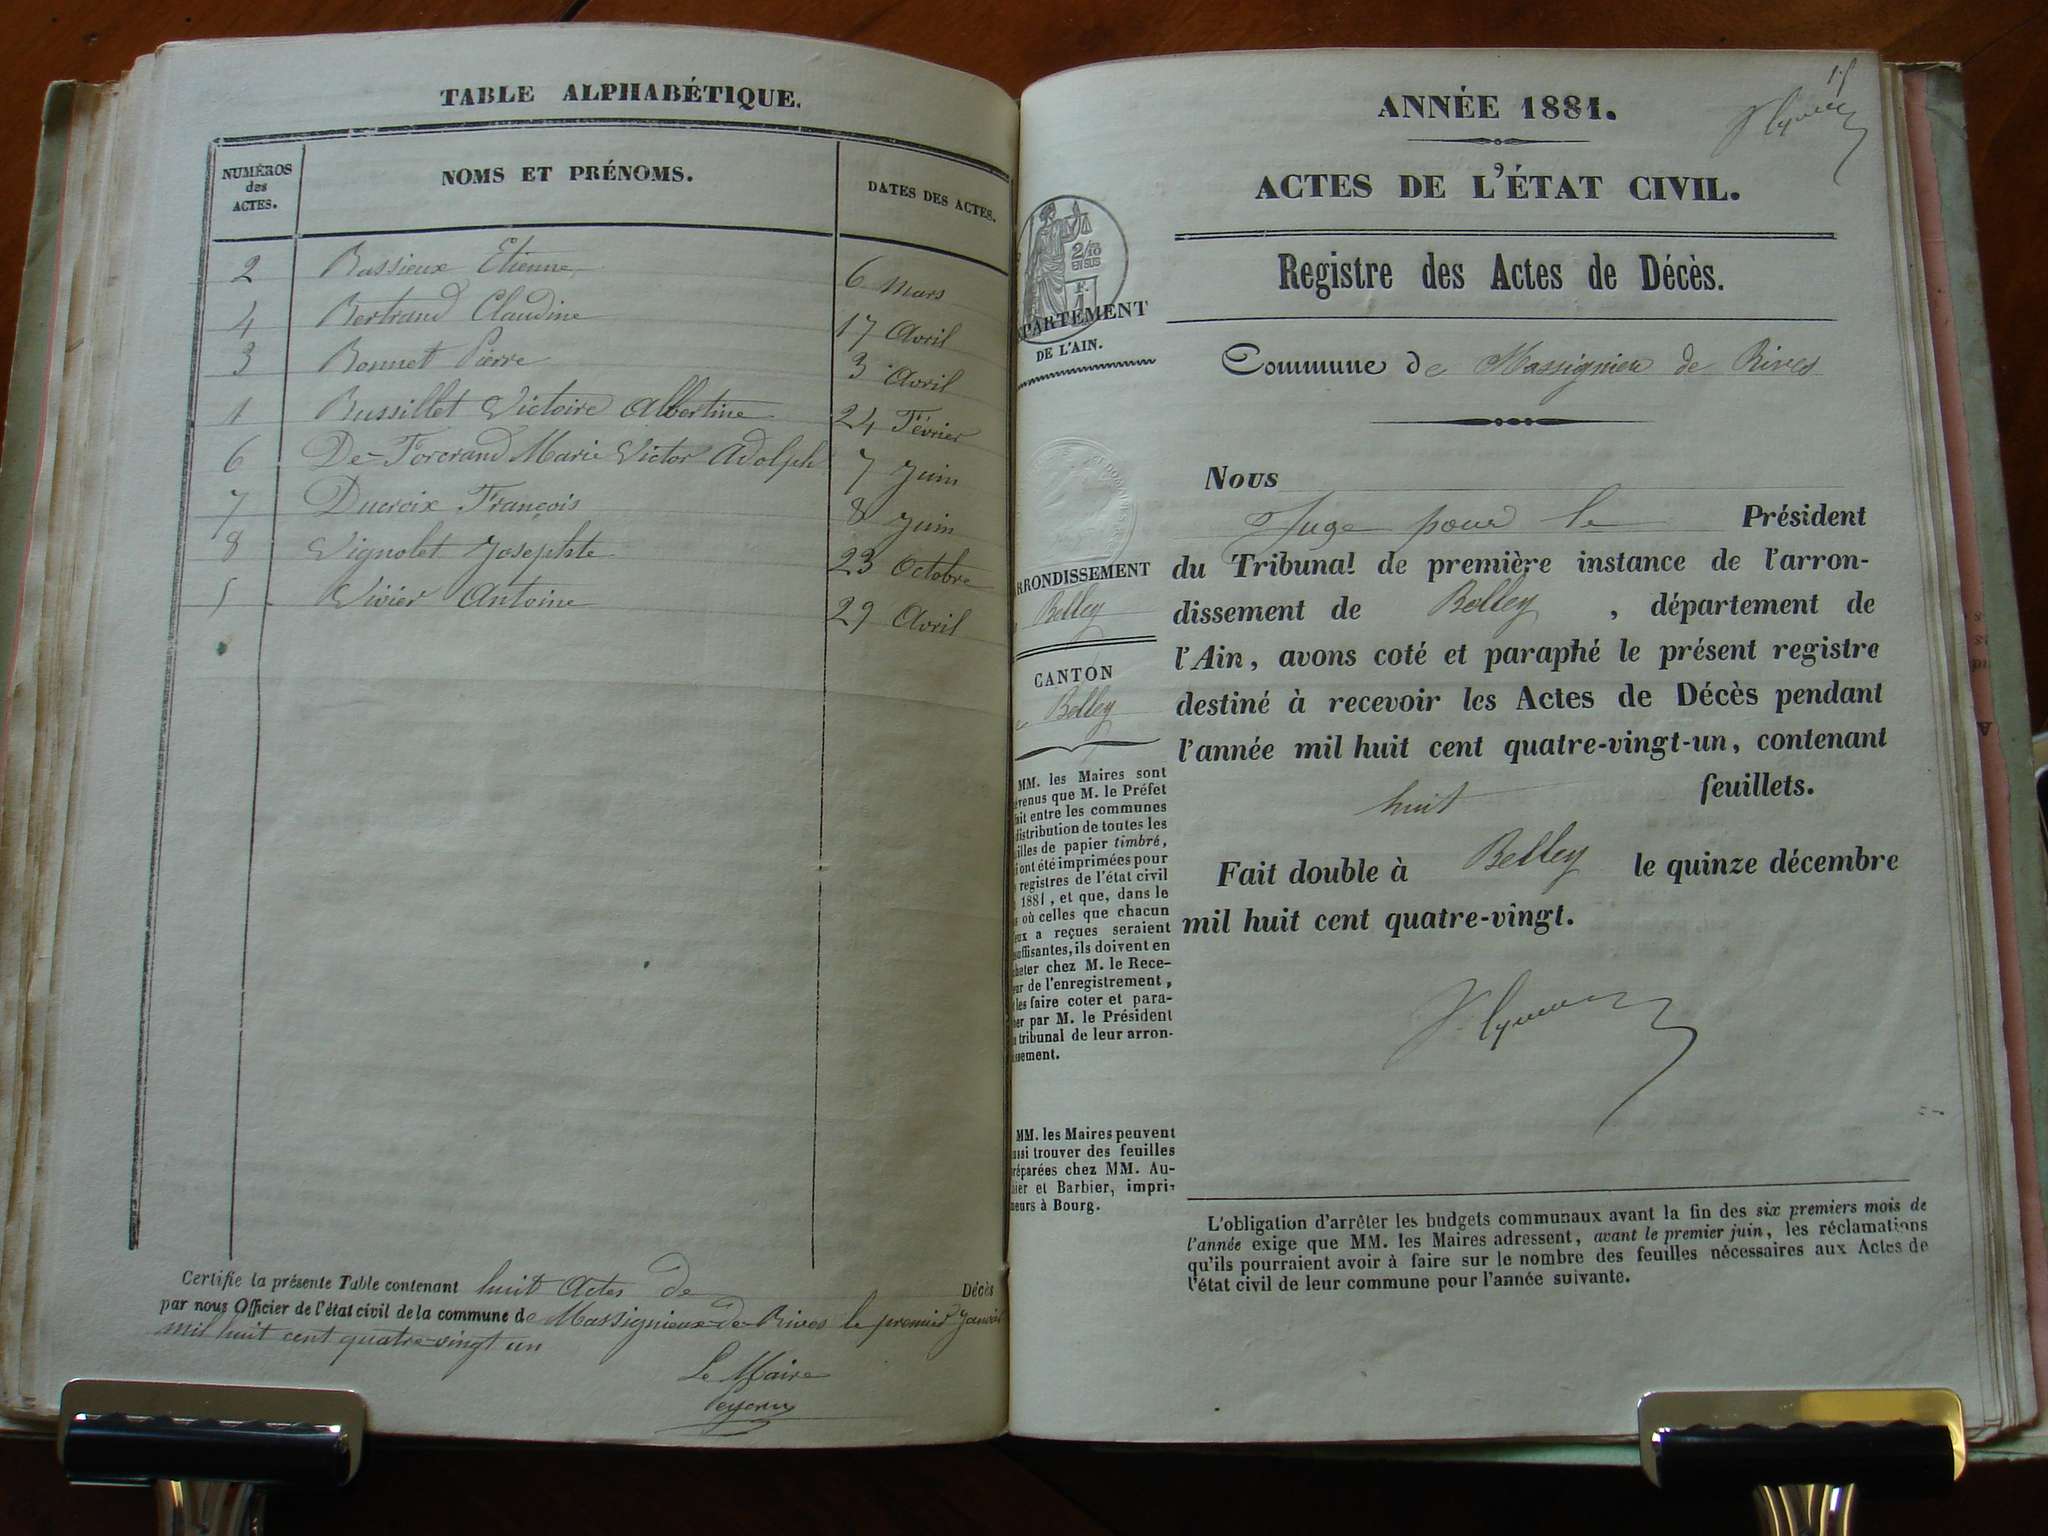 TABLE ALPHABÉTIQUE.
NUMÉROS des ACTES.
NOMS ET PRÉNOMS.
DATES DES ACTES.
2 Bassieux Etienne 6 Mars
4 Bertrand Claudine 17 Avril
3 Bonnet Pierre 3 Avril
1 Bussillet Victoire Albertine 24 Février
6 De-Forcrand Marie Victor Adolph 7 Juin
7 Ducroix François 8 Juin
8 Vignolet Josephte 23 Octobre
5 Vivier Antoine 29 Avril
Certifie la présente Table contenant huit Actes de Décès
par nous Officier de l'état civil de la commune de Massignieux-de-Rives le premier Janvier
mil huit cent quatre-vingt un
Le Maire
ANNÉE 1881.
ACTES DE L'ÉTAT CIVIL.
Registre des Actes de Décès.
Commune de Massignieu de Rives
2/10
EN SUS
PARTEMENT
DE L'AIN.
RRONDISSEMENT
Belley
CANTON
Belley
MM. les Maires sont
venus que M. le Préfet
ait entre les communes
distribution de toutes les
illes de papier timbré,
i ont été imprimées pour
registres de l'état civil
1881, et que, dans le
s où celles que chacun
eux a reçues seraient
suffisantes, ils doivent en
cheter chez M. le Rece-
eur de l'enregistrement,
les faire coter et para-
her par M. le Président
u tribunal de leur arron-
issement.
MM. les Maires peuvent
ussi trouver des feuilles
réparées chez MM. Au-
hier et Barbier, impri-
meurs à Bourg.
Nous
Juge pour le Président
du Tribunal de première instance de l'arron-
dissement de Belley, département de
l'Ain, avons coté et paraphé le présent registre
destiné à recevoir les Actes de Décès pendant
l'année mil huit cent quatre-vingt-un, contenant
huit feuillets.
Fait double à Belley le quinze décembre
mil huit cent quatre-vingt.
L'obligation d'arrêter les budgets communaux avant la fin des six premiers mois de
l'année exige que MM. les Maires adressent, avant le premier juin, les réclamations
qu'ils pourraient avoir à faire sur le nombre des feuilles nécessaires aux Actes de
l'état civil de leur commune pour l'année suivante.